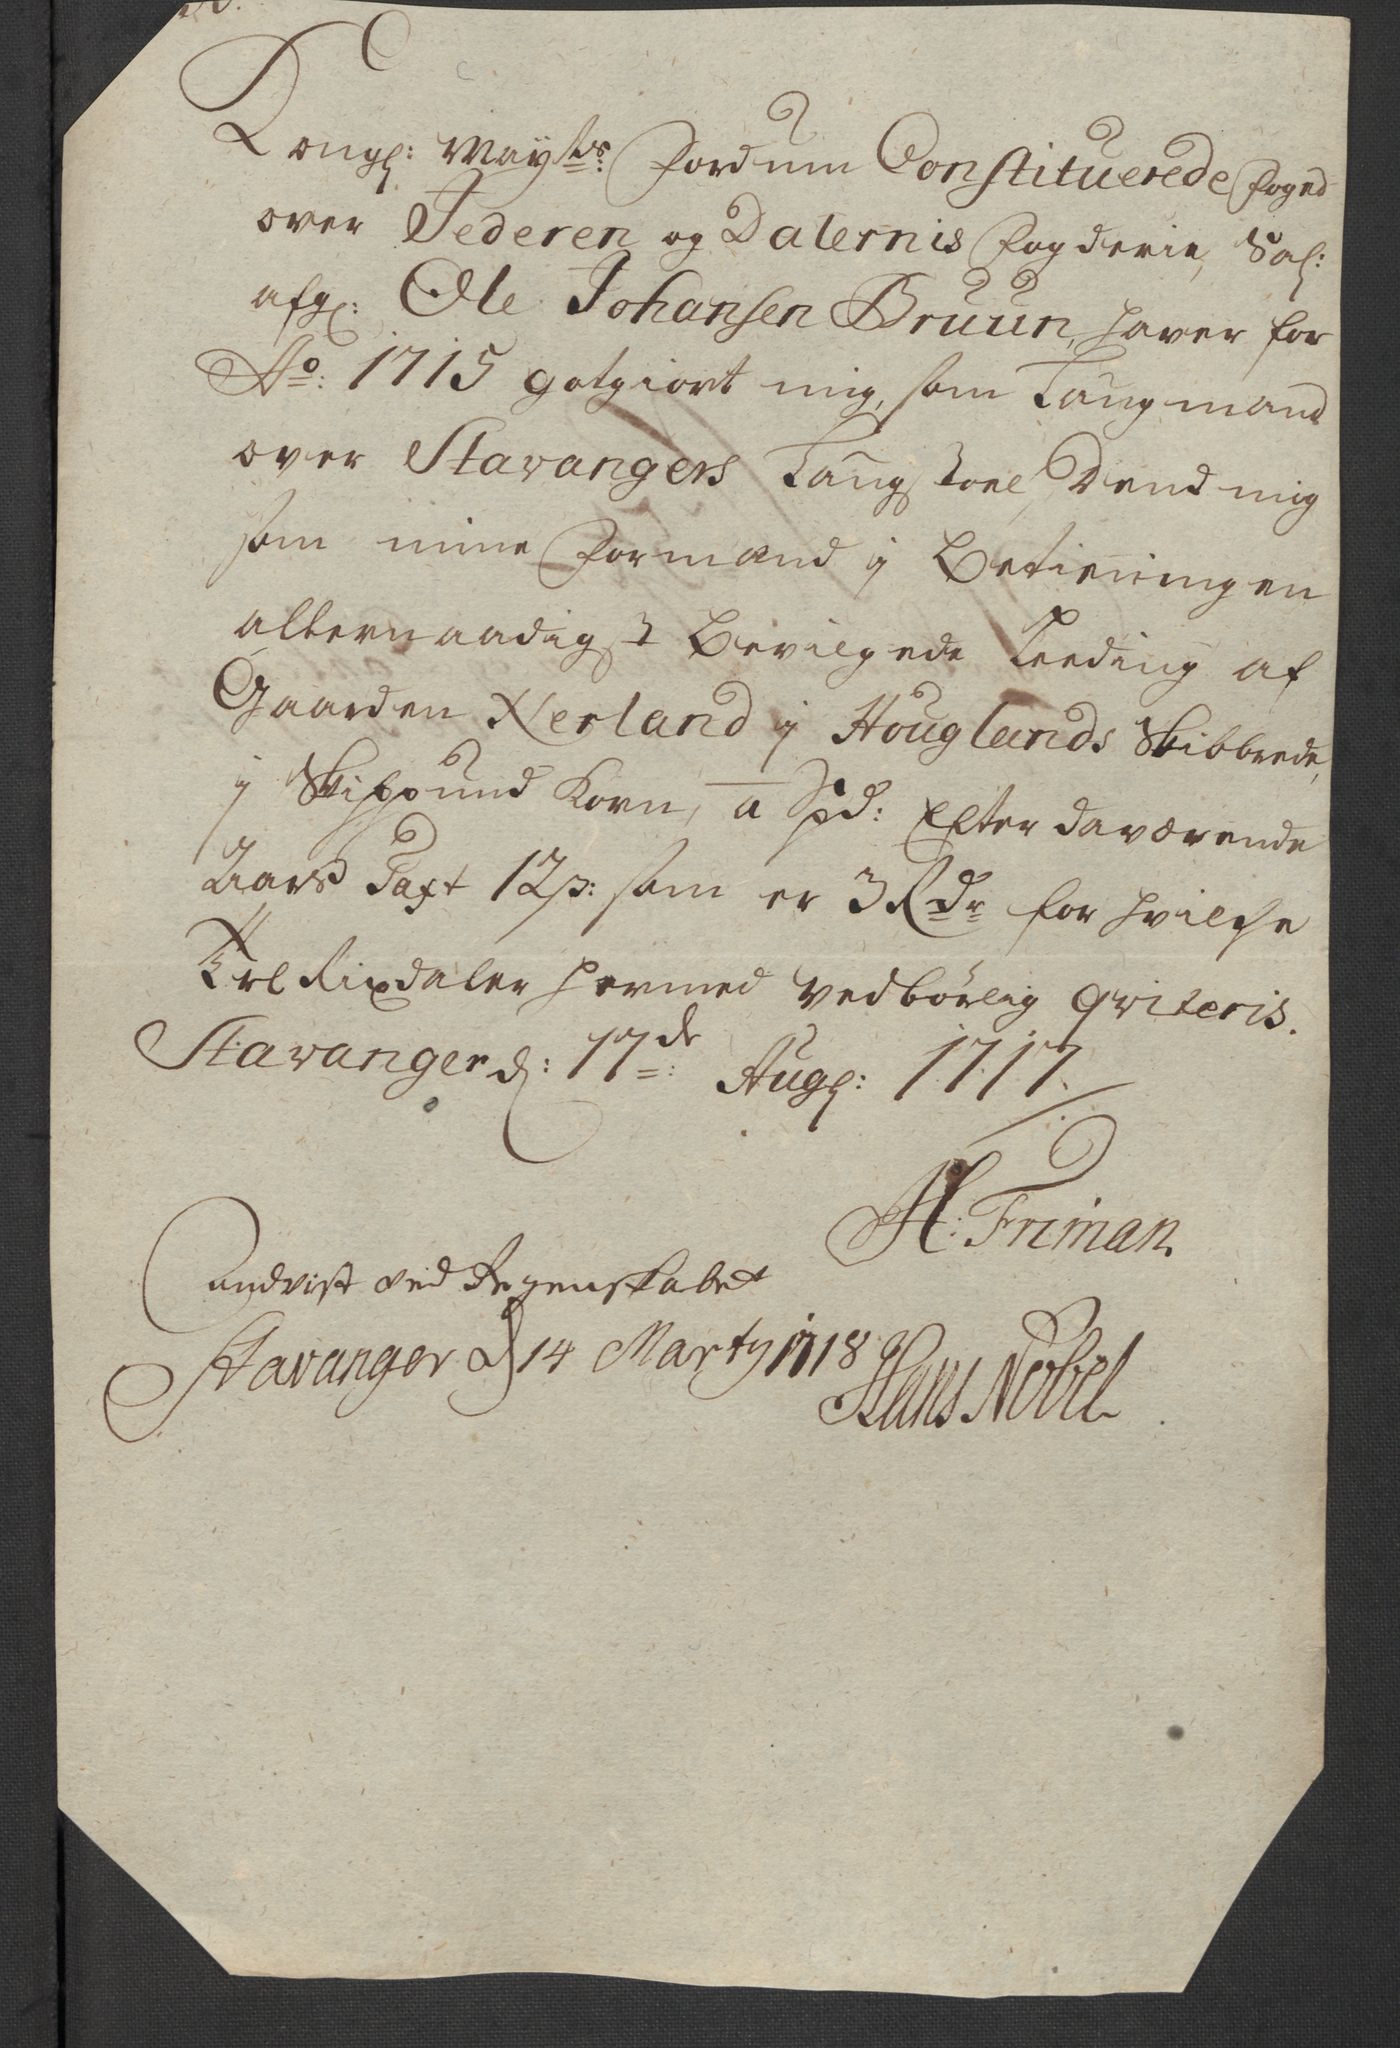 Kongl: Mayts: Fordum Constituerede Foged
over Jederen og Dalernis Fogderie, Sal:
afg: Ole Johansen Bruun, haver for
Ao: 1715 gotgiort mig, som Laugmand
over Stavangers Laugstoel, Dend mig
som mine Formænd j Betieningen
allernaadigst Bevilgede Leeding af
Gaarden Nerland j Houglands Skibbrede,
j Skippund Korn, a Spd: Efter daværende
Aars Taxt 12 s: som er 3 Rdr for hvilche
Tre Rixdaler hermed vedbørlig qviteris.
Stavanger d: 17de: Aug: 1717.
H: Friman
andvist ved Regenskabet
Stavanger d 14 Marty 1718 Hans Nobel